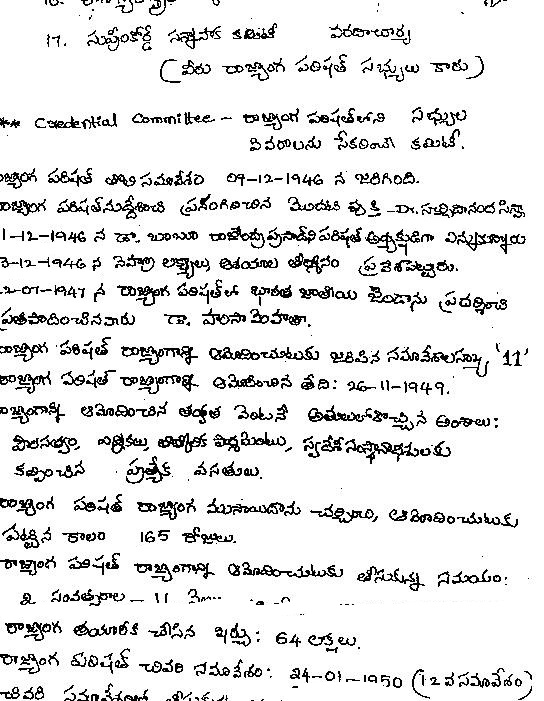 17. సుప్రీంకోర్టే సన్నాహక కమిటీ వరదాచార్య
(వీరు రాజ్యాంగ పరిషత్ సభ్యులు కారు)
** Credential Committee - రాజ్యాంగ పరిషత్‌లోని సభ్యుల
వివరాలను సేకరించే కమిటీ.
రాజ్యాంగ పరిషత్ తొలి సమావేశం 09-12-1946 న జరిగింది.
రాజ్యాంగ పరిషత్‌నుద్దేశించి ప్రసంగించిన మొదటి వ్యక్తి - Dr. సచ్చిదానంద సిన్హా
1-12-1946 న డా. బాబూ రాజేంద్రప్రసాద్‌ని పరిషత్ అధ్యక్షుడిగా ఎన్నుకున్నారు
3-12-1946 న నెహ్రూ లక్ష్యాలు, ఆశయాల తీర్మానం ప్రవేశపెట్టారు.
2-07-1947 న రాజ్యాంగ పరిషత్‌లో భారత జాతీయ జెండాను ప్రదర్శించి
ప్రతిపాదించినవారు డా. హంసా మెహతా.
రాజ్యాంగ పరిషత్ రాజ్యాంగాన్ని ఆమోదించుటకు జరిపిన సమావేశాల సంఖ్య '11'
రాజ్యాంగ పరిషత్ రాజ్యాంగాన్ని ఆమోదించిన తేది: 26-11-1949.
రాజ్యాంగాన్ని ఆమోదించిన తర్వాత వెంటనే అమలులోకొచ్చిన అంశాలు:
పౌరసత్వం, ఎన్నికలు, తాత్కాలిక పార్లమెంటు, స్వదేశీ సంస్థానాధీశులకు
కల్పించిన ప్రత్యేక వసతులు.
రాజ్యాంగ పరిషత్ రాజ్యాంగ ముసాయిదాను చర్చించి, ఆమోదించుటకు
పట్టిన కాలం 165 రోజులు.
రాజ్యాంగ పరిషత్ రాజ్యాంగాన్ని ఆమోదించుటకు తీసుకున్న సమయం:
2 సంవత్సరాల - 11
రాజ్యాంగ తయారీకి చేసిన ఖర్చు: 64 లక్షలు.
రాజ్యాంగ పరిషత్ చివరి సమావేశం: 24-01-1950 (12వ సమావేశం)
చివరి